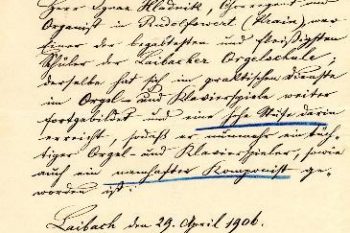 Herr Ignaz Hladnik, Chorregent und
Organist in Rudolfswert (Krain), war
einer der begabtesten und fleißigsten
Schüler der Laibacher Orgelschule;
derselbe hat sich im praktischen Dienste
im Orgel- und Klavierspiele weiter
fortgebildet und eine hohe Stufe darin
erreicht, sodaß er nunmehr ein tüch-
tiger Orgel- und Klavierspieler, sowie
auch ein namhafter Komponist ge-
worden ist.
Laibach den 29. April 1906.